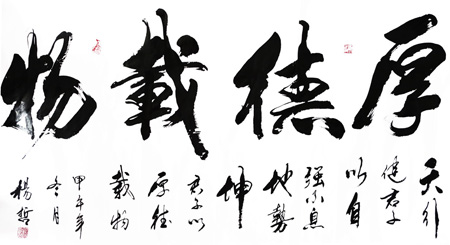 厚德載物
天行
健君子
以自
强不息
地勢
坤
君子以
厚德
載物
甲午年
冬月
楊哲